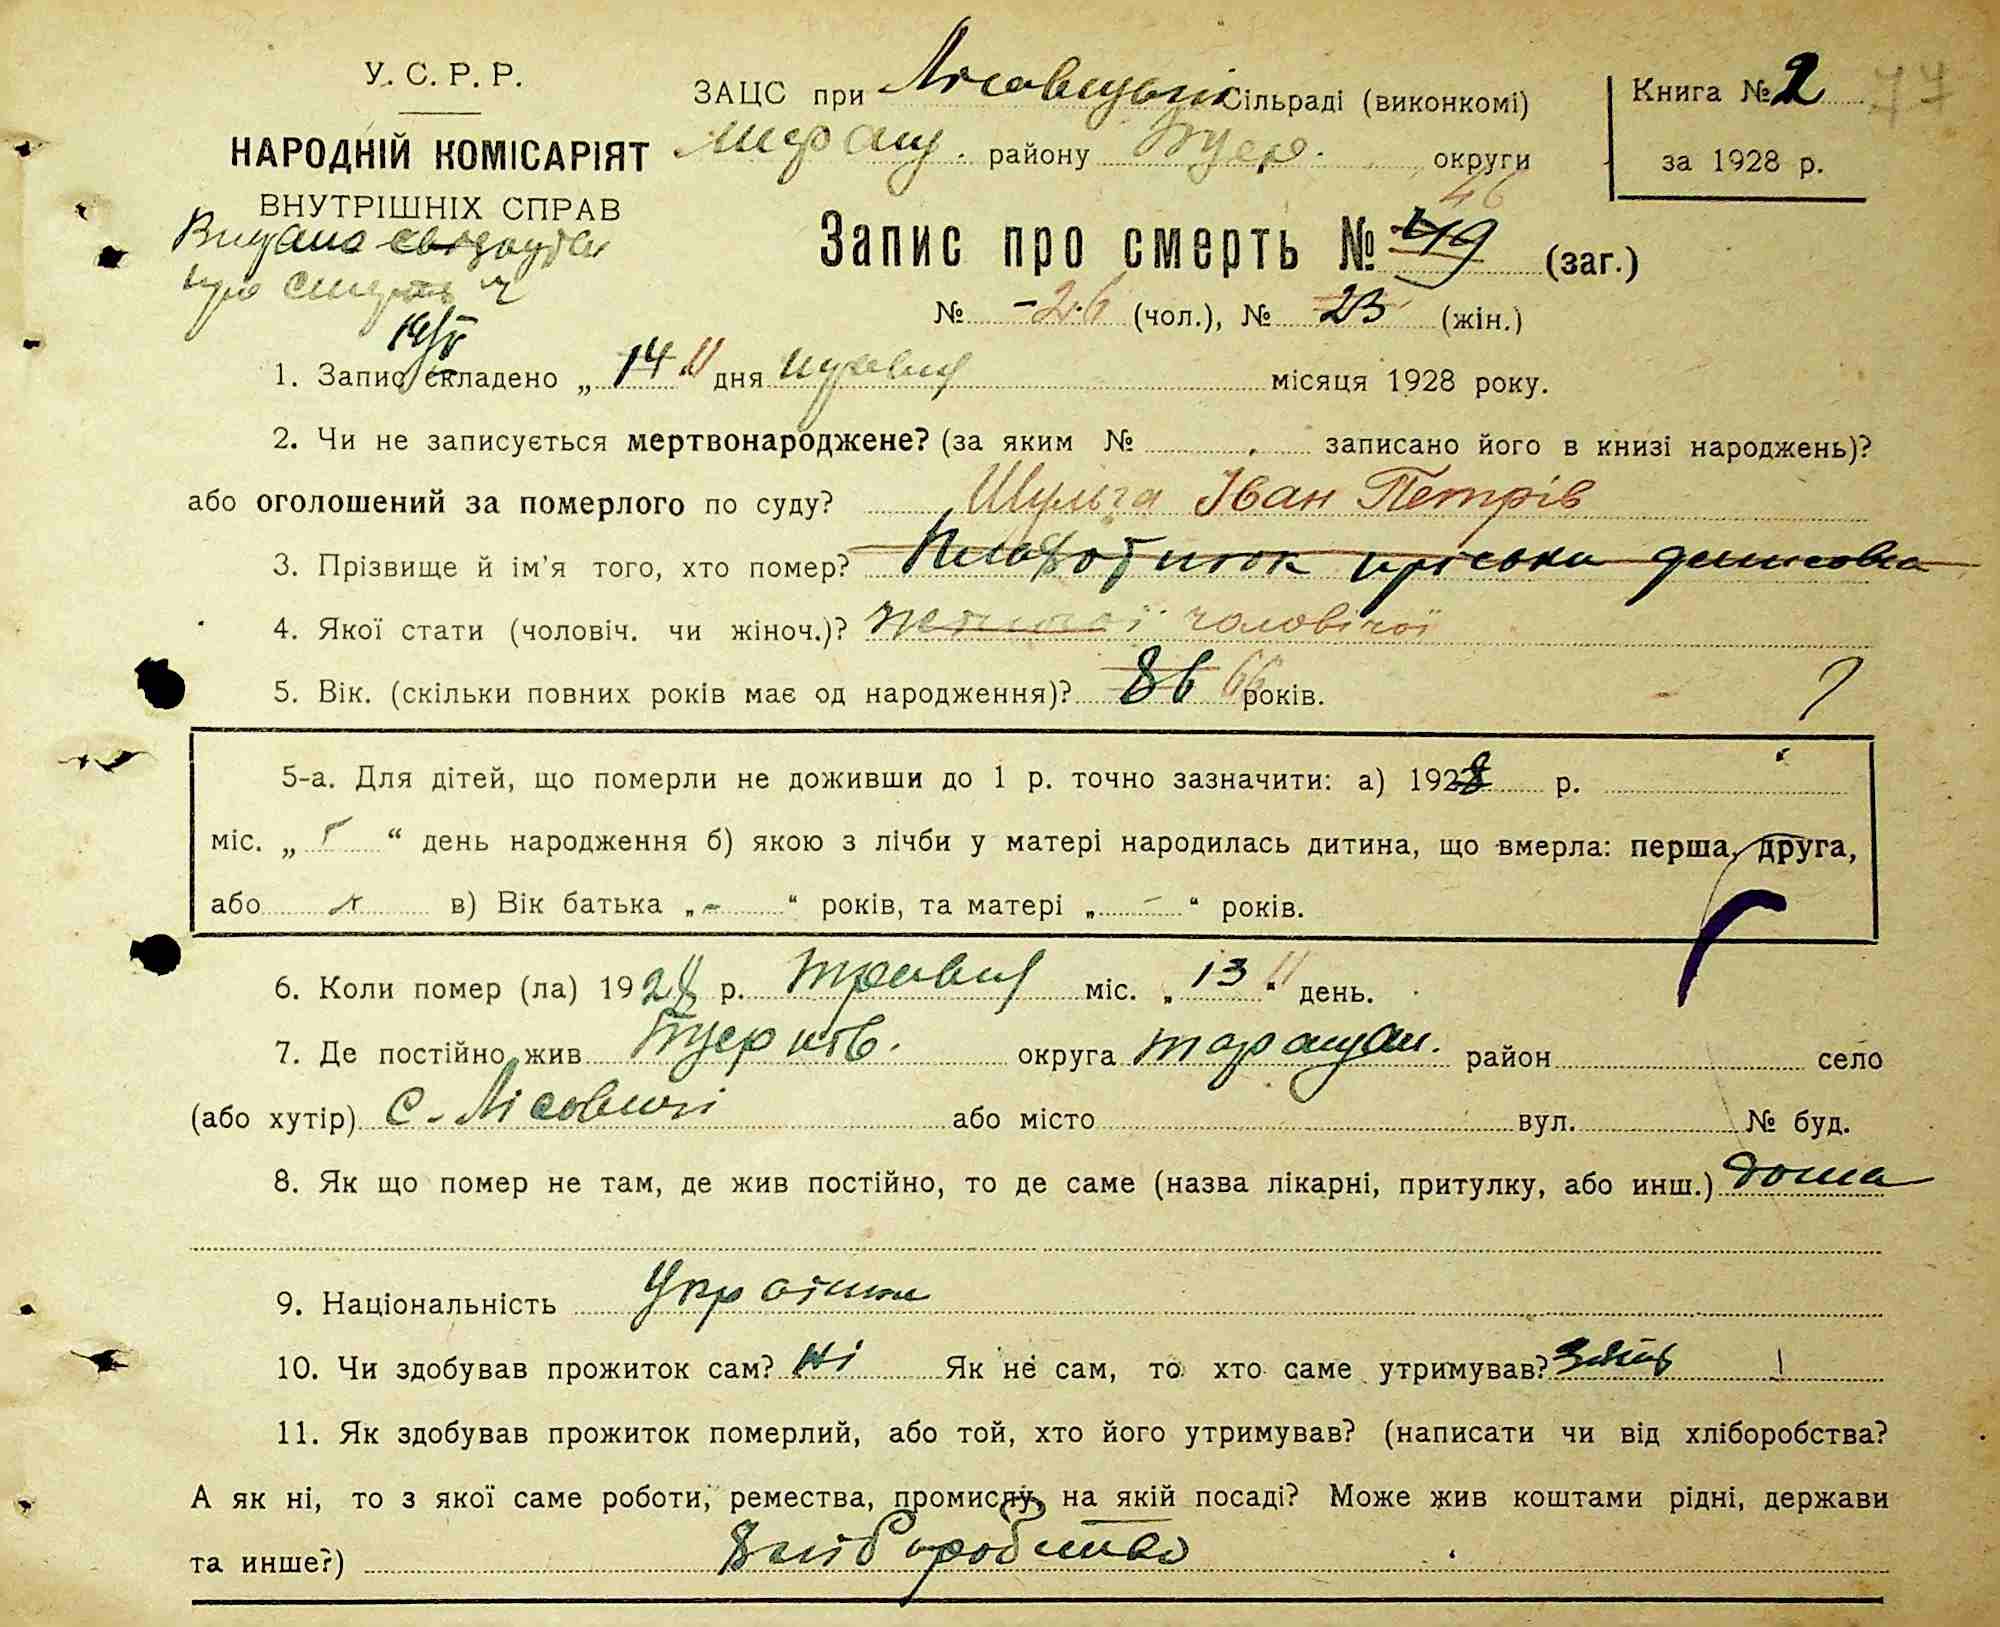 У. С. Р. Р.
НАРОДНІЙ КОМІСАРІЯТ
ВНУТРІШНІХ СПРАВ
Видано
про смерть
14/V
ЗАЦС при Лісовицькій Сільраді (виконкомі)
району округи
Книга № 2 77
за 1928 р.
Запис про смерть № 49 46 (заг.)
№ - 26 (чол.), № 23 (жін.)
1. Запис складено „ 14 " дня травня місяця 1928 року.
2. Чи не записується мертвонароджене? (за яким № записано його в книзі народжень)?
або оголошений за померлого по суду? Шульга Іван Петрів
3. Прізвище й ім'я того, хто помер?
4. Якої стати (чоловіч. чи жіноч.)? чоловічої
5. Вік. (скільки повних років має од народження)? 86 66 років.
?
5-а. Для дітей, що померли не доживши до 1 р. точно зазначити: а) 1928 р.
міс. „ “ день народження б) якою з лічби у матері народилась дитина, що вмерла: перша, друга,
або в) Вік батька „ - “ років, та матері „ - “ років.
6. Коли помер (ла) 1928 р. травня міс. „ 13 “ день.
7. Де постійно жив округа таращан. район село
(або хутір) с. Лісовичі або місто вул. № буд.
8. Як що помер не там, де жив постійно, то де саме (назва лікарні, притулку, або инш.) дома
9. Національність
10. Чи здобував прожиток сам? ні Як не сам, то хто саме утримував? зять
11. Як здобував прожиток померлий, або той, хто його утримував? (написати чи від хліборобства?
А як ні, то з якої саме роботи, ремества, промислу, на якій посаді? Може жив коштами рідні, держави
та инше?) хліборобство